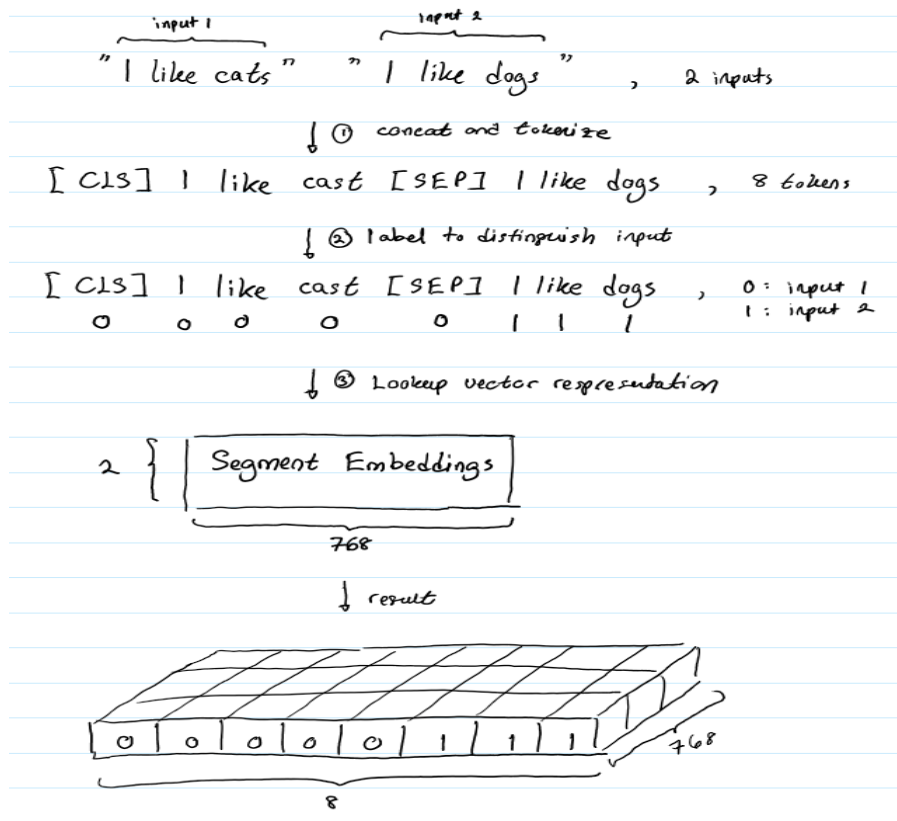 input 1 input 2
" I like cats " " I like dogs " , 2 inputs
① concat and tokenize
[ CLS ] I like cast [ SEP ] I like dogs , 8 tokens
② label to distinguish input
[ CLS ] I like cast [ SEP ] I like dogs , 0 : input 1
0 0 0 0 0 1 1 1 1 : input 2
③ Lookup vector respresentation
2 Segment Embeddings
768
result
0 0 0 0 0 1 1 1
768
8